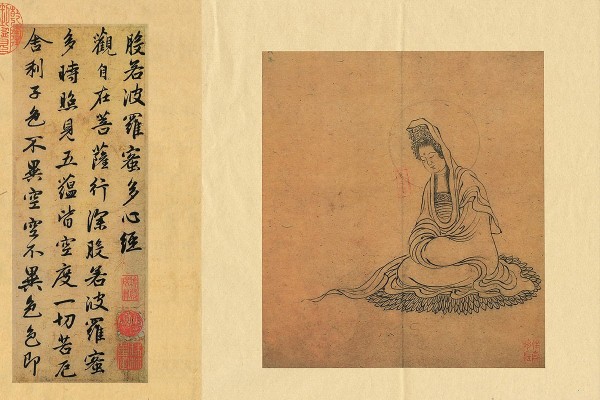 般若波羅蜜多心經
觀自在菩薩行深般若波羅蜜
多時照見五蘊皆空度一切苦厄
舍利子色不異空空不異色色即